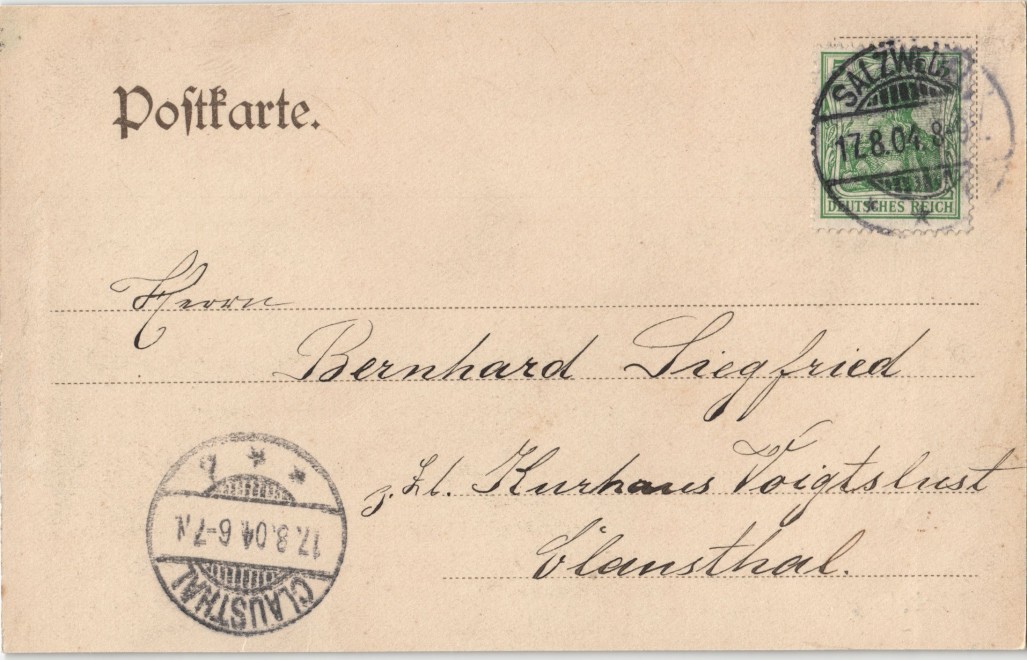 Postkarte.
SALZWEDEL
17.8.04. 8-9
DEUTSCHES REICH
Herrn
Bernhard Siegfried
z. Zt. Kurhaus Voigtslust
Clausthal.
17.8.04 6-7 N.
CLAUSTHAL